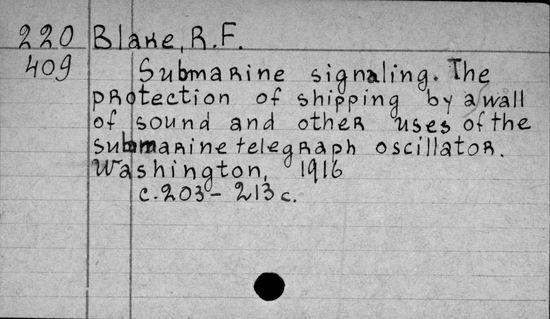 220 Blake, R.F.
409 Submarine signaling. The
protection of shipping by a wall
of sound and other uses of the
submarine telegraph oscillator.
Washington, 1916
c. 203 - 213 c.